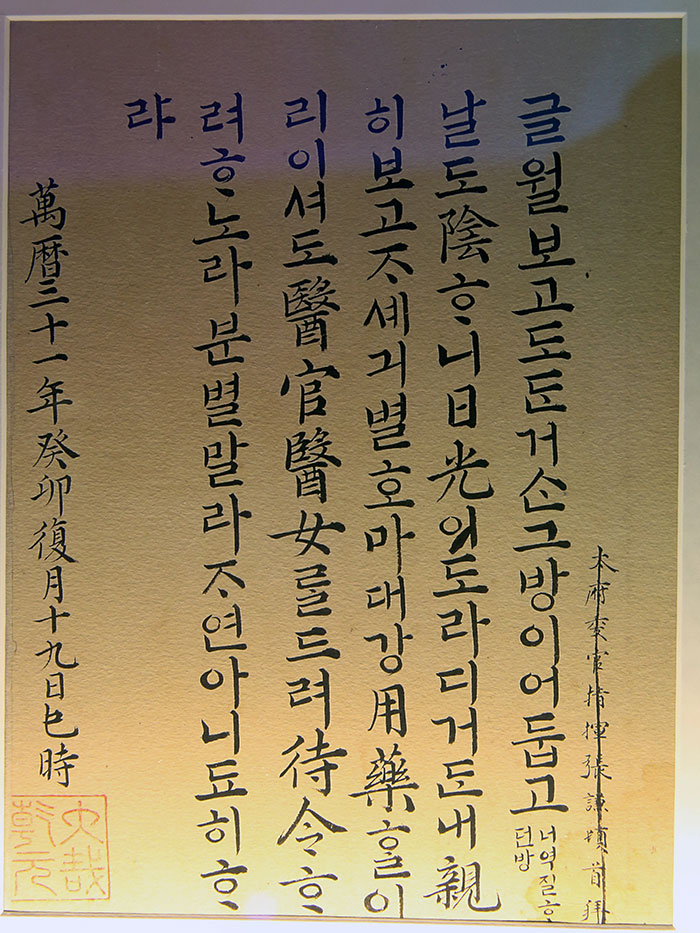 本府委官指揮張謙頓首拜
글월보고도ᄃᆞᆫ거ᄉᆞᆫ그방이어둡고
너역질ᄒᆞ
던방
날도陰ᄒᆞ니日光이도라디거ᄃᆞᆫ내親
히보고ᄌᆞ셰긔별호마대강用藥ᄒᆞᆯ이
리이셔도醫官醫女ᄅᆞᆯ드려待令ᄒᆞ
려ᄒᆞ노라분별말라ᄌᆞ연아니됴히ᄒᆞ
랴
萬暦三十一年癸卯復月十九日巳時
大哉
乾元